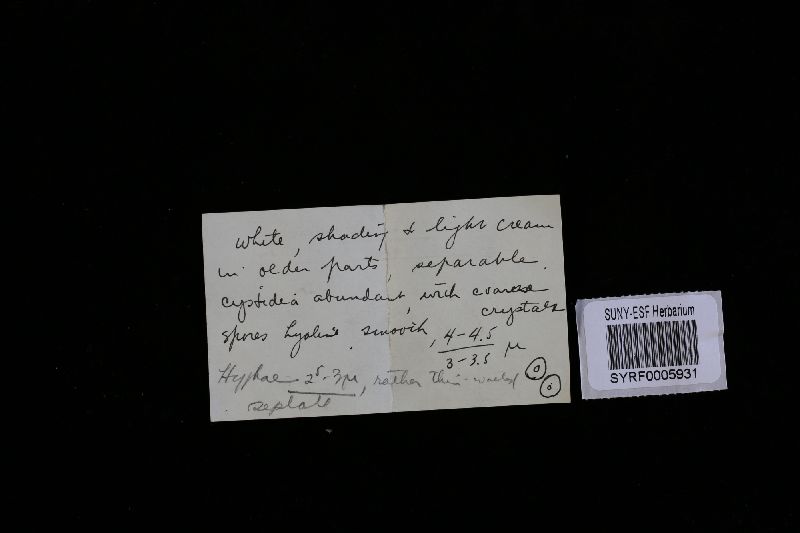 white, shading to light cream
in older parts, separable.
cystidia abundant, with coarse
crystals
spores hyaline, smooth, 4-4.5
3-3.5 µ
Hyphae 2.5-3µ, rather thin-walled
septate
SUNY-ESF Herbarium
SYRF0005931